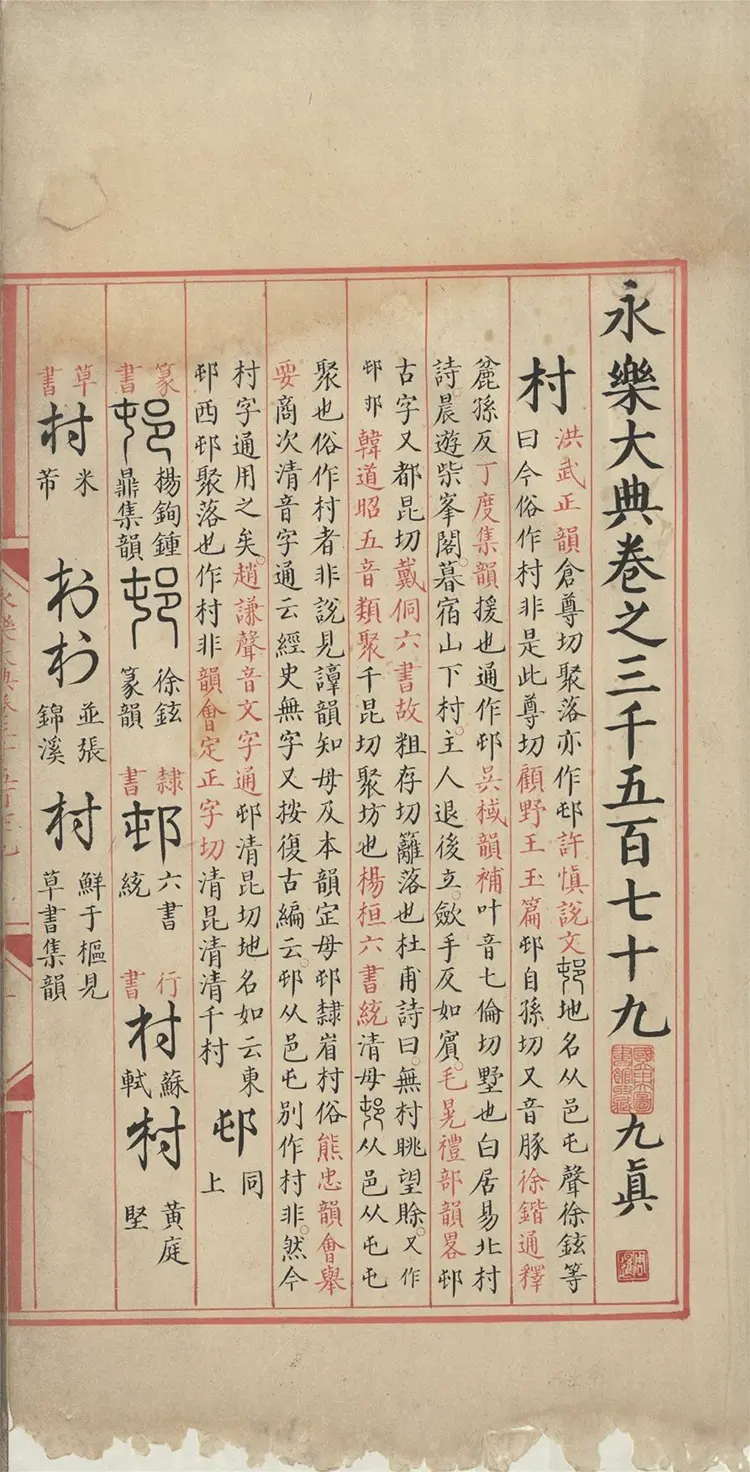 永樂大典卷之三千五百七十九 九眞
村
洪武正韻倉尊切聚落亦作邨許愼說文邨地名从邑屯聲徐鉉等
曰今俗作村非是此尊切顧野王玉篇邨自孫切又音豚徐鍇通釋
麄孫反丁度集韻援也通作邨吳棫韻補叶音七倫切墅也白居易北村
詩晨遊柴峯閣暮宿山下村主人退後立斂手反如賓毛晃禮部韻畧邨
古字又都昆切戴侗六書故粗存切籬落也杜甫詩曰無村眺望賒又作
邨𨙻韓道昭五音類聚千昆切聚坊也楊桓六書統清母邨从邑从屯屯
聚也俗作村者非說見諄韻知母及本韻定母邨隸省村俗熊忠韻會舉
要商次清音字通云經史無字又按復古編云邨从邑屯別作村非然今
村字通用之矣趙謙聲音文字通邨清昆切地名如云東
邨西邨聚落也作村非韻會定正字切清昆清清千村
邨
同
上
篆
書
邨
楊鉤鍾
鼎集韻
邨
徐鉉
篆韻
隸
書
邨
六書
統
行
書
村
蘇
軾
村
黃庭
堅
草
書
村
米
芾
村村
並張
錦溪
村
鮮于樞見
草書集韻